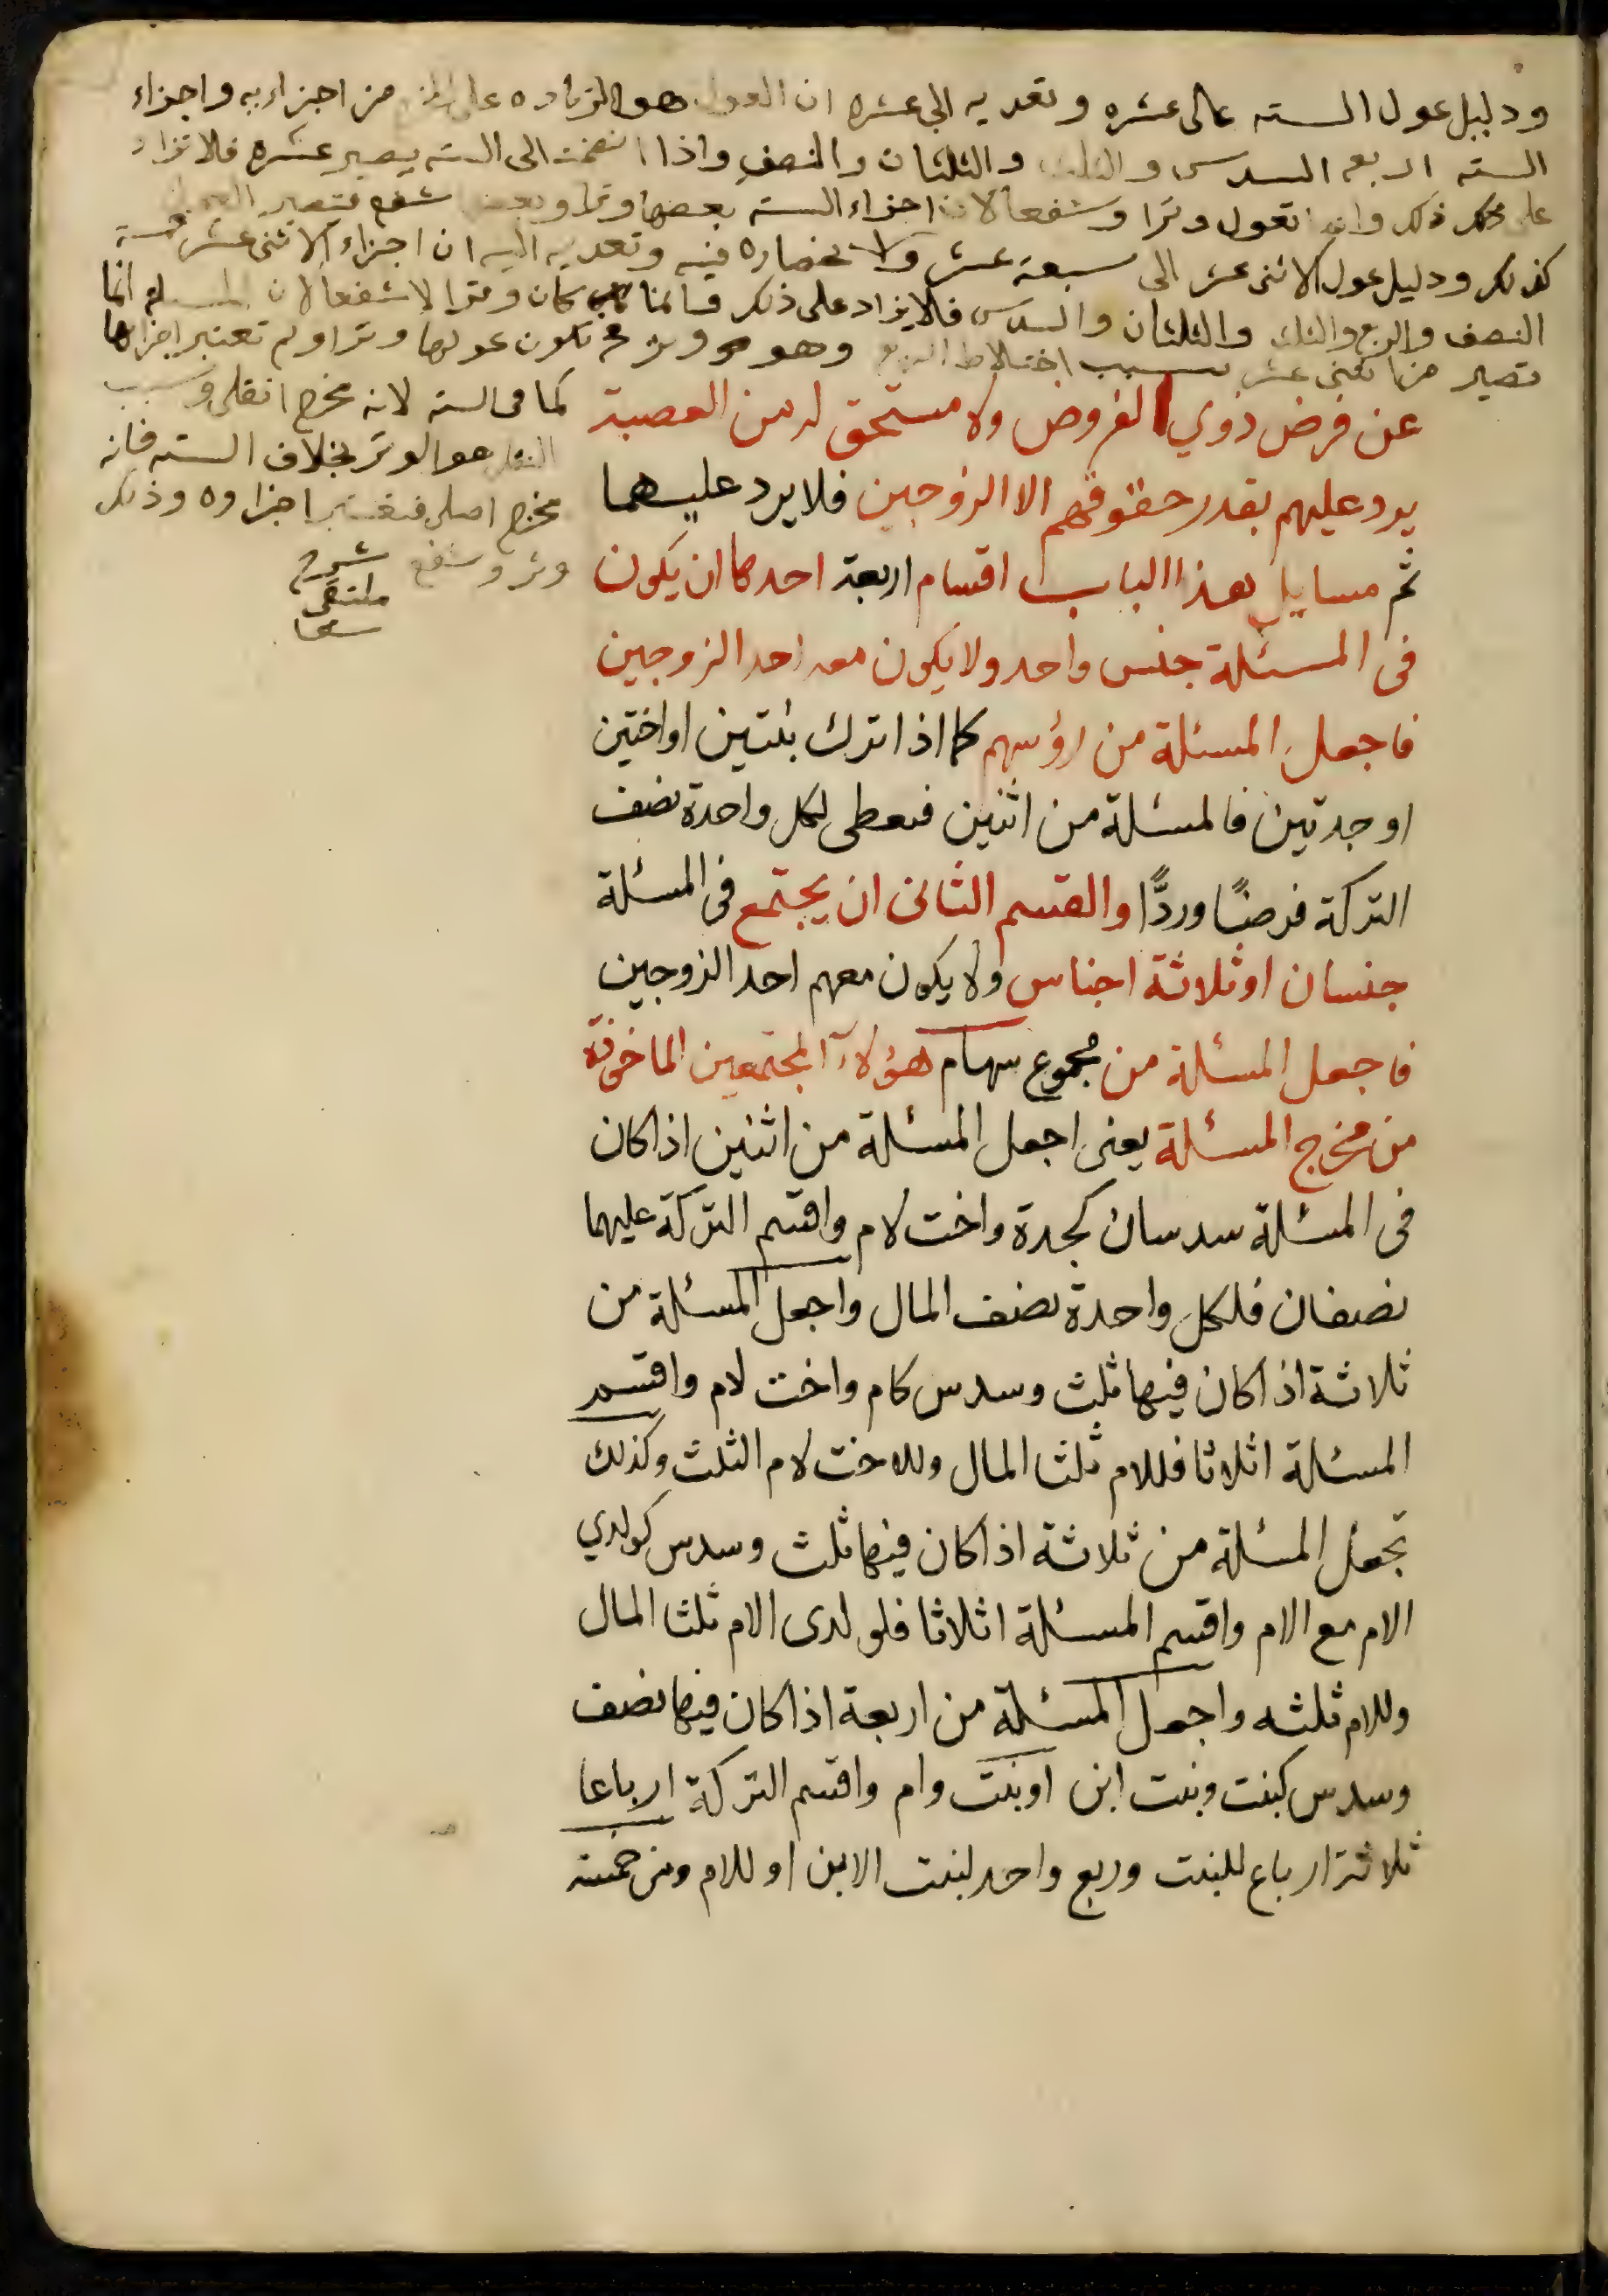 ودليل عول السته الى عشره وتعديه الى عشره ان العول هو الزياده على من اجزائه واجزاء
السته اربعه السدس والثلث والثلثان والنصف واذا انضمت الى السته يصير عشره فلا تزاد
على ذلك وانما تعول وترا وشفعا لان اجزاء السته بعضها وتر وبعضها شفع فتصير العول
كذلك ودليل عول الاثنى عشر الى سبعة عشر ولانحصاره فيه وتعديه اليه ان اجزاء الاثنى عشر خمسة
النصف والربع والثلث والثلثان والسدس فلا يزاد على ذلك كان وترا لا شفعا لان المسئله انما
تصير من اثنى عشر بسبب اختلاط الربع وهو وتر تكون عولها وترا ولم تعتبر اجزاؤها
كما فى السته لانه مخرج انقلى وسبب
النقل هو الوتر بخلاف السته فانه
مخرج اصلى فتعتبر اجزاوه وذلك
وتر وشفع شرح
ملتقى
عن فرض ذوي الفروض ولا مستحق له من العصبة
يرد عليهم بقدر حقوقهم الا الزوجين فلا يرد عليهما
ثم مسايل هذا الباب اقسام اربعة احدها ان يكون
فى المسئلة جنس واحد ولا يكون معه احد الزوجين
فاجعل المسئلة من رؤسهم كما اذا ترك بنتين او اختين
او جدتين فالمسئلة من اثنين فيعطى لكل واحدة نصف
التركة فرضًا وردًّا والقسم الثانى ان يجتمع فى المسئلة
جنسان او ثلاثة اجناس ولا يكون معهم احد الزوجين
فاجعل المسئلة من مجموع سهام هؤلاء المجتمعين الماخوذة
من مخرج المسئلة يعنى اجعل المسئلة من اثنين اذا كان
فى المسئلة سدسان كجدة واخت لام واقسم التركة عليهما
نصفان فلكل واحدة نصف المال واجعل المسئلة من
ثلاثة اذا كان فيها ثلث وسدس كام واخت لام واقسم
المسئلة اثلاثا فللام ثلثا المال وللاخت لام الثلث وكذلك
تجعل المسئلة من ثلاثة اذا كان فيها ثلث وسدس كولدي
الام مع الام واقسم المسئلة اثلاثا فلولدى الام ثلثا المال
وللام ثلثه واجعل المسئلة من اربعة اذا كان فيها نصف
وسدس كبنت وبنت ابن او بنت وام واقسم التركة ارباعا
ثلاثة ارباع للبنت وربع واحد لبنت الابن او للام ومن خمسة